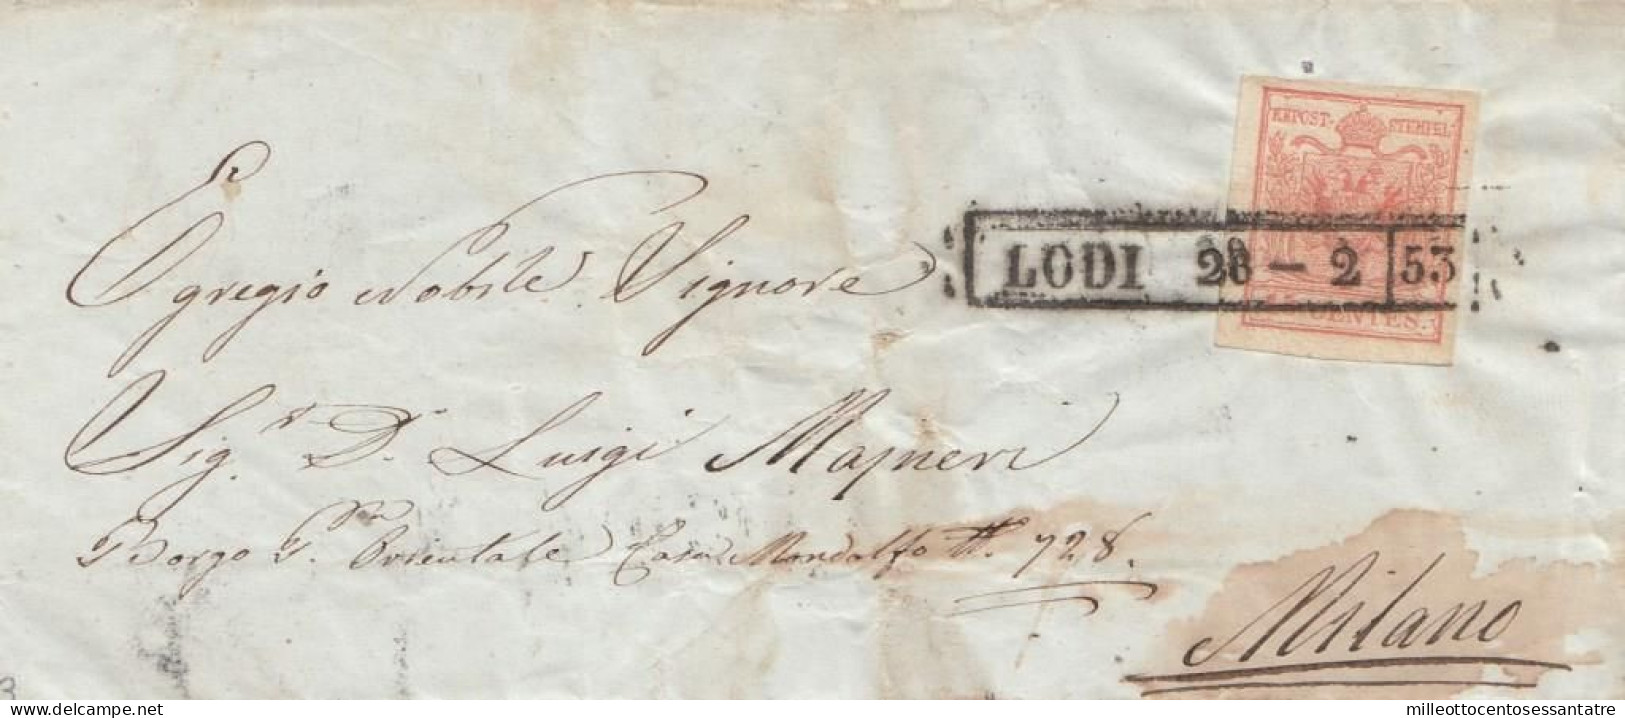 KKPOST-STEMPEL
LODI 28 - 2 53
15 CENTES.
Egregio Nobile Signore
Sig.r D.r Luigi Majneri
Borgo P.ta Orientale Casa Mondolfo N. 728.
Milano
delcampe.net
milleottocentosessantatre